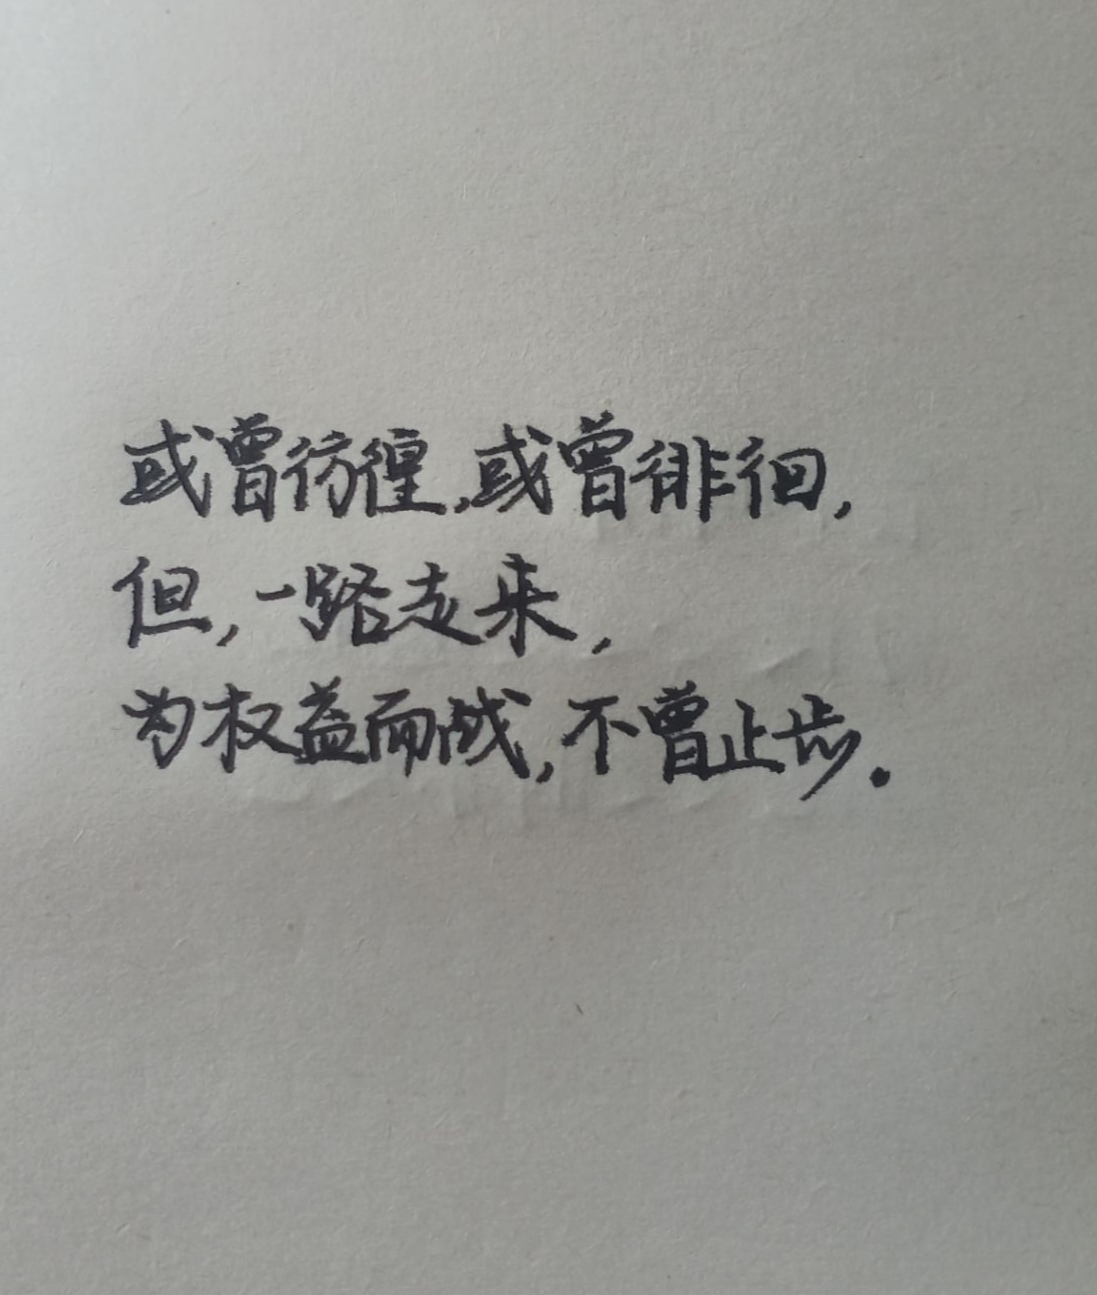 或曾彷徨,或曾徘徊,
但,一路走来,
为权益而战,不曾止步.